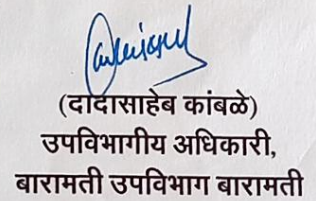 (दादासाहेब कांबळे)
उपविभागीय अधिकारी,
बारामती उपविभाग बारामती